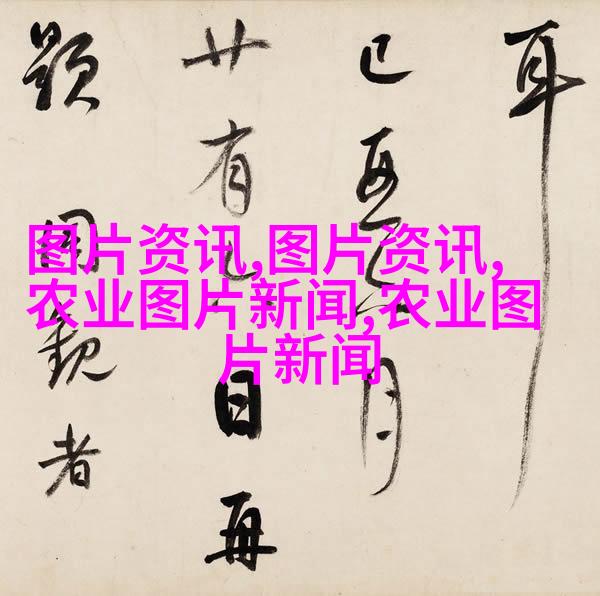 耳
己月
廿有日再
題觀者
图片资讯,图片资讯,
农业图片新闻,农业图
片新闻